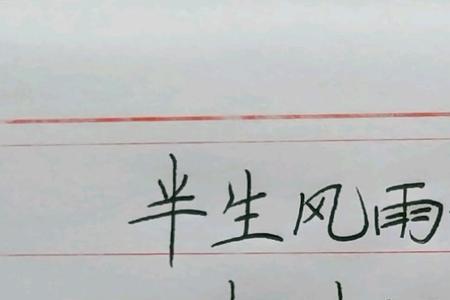 半生风雨